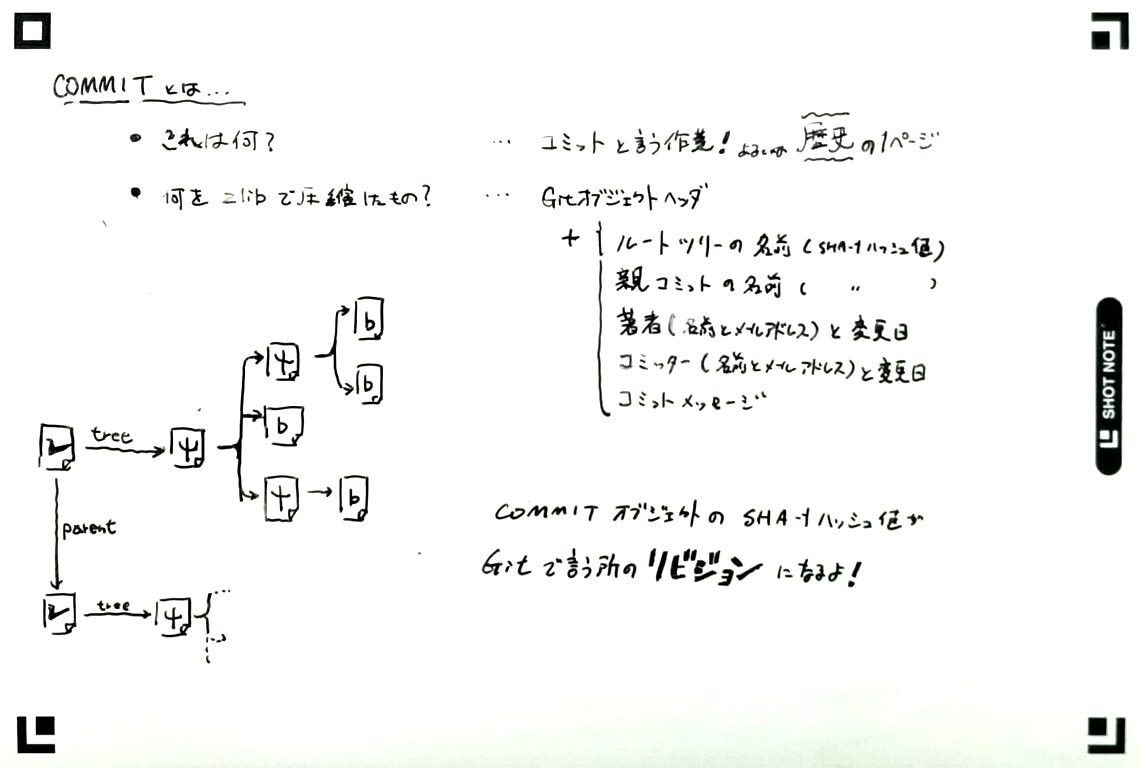 COMMITとは...
• これは何? ... コミットと言う作業! よるには 歴史の1ページ
• 何をzlibで圧縮したもの? ... Gitオブジェクトヘッダ
+ ルートツリーの名前(SHA-1ハッシュ値)
親コミットの名前( 〃 )
著者(名前とメールアドレス)と変更日
コミッター(名前とメールアドレス)と変更日
コミットメッセージ
b
b
b
tree
b
parent
tree
COMMITオブジェクトのSHA-1ハッシュ値が
Gitで言う所のリビジョンになるよ!
SHOT NOTE